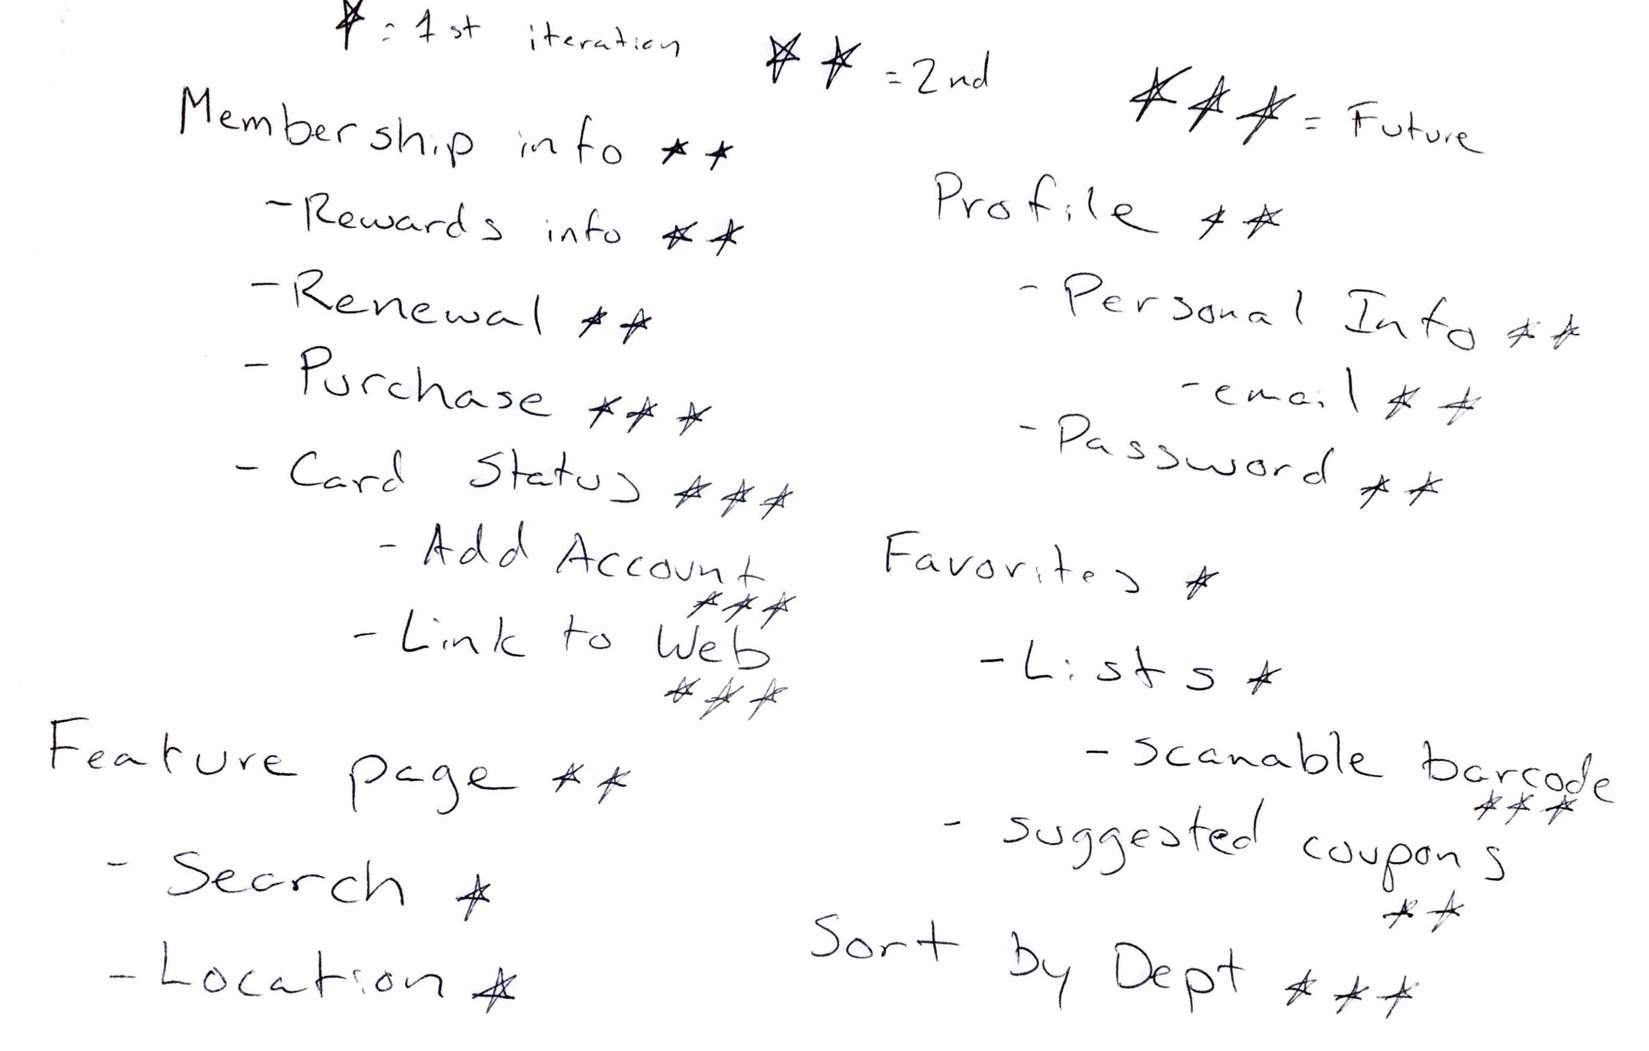 ☆ = 1st iteration
☆☆ = 2nd
☆☆☆ = Future
Membership info ☆☆
- Rewards info ☆☆
- Renewal ☆☆
- Purchase ☆☆☆
- Card Status ☆☆☆
- Add Account
☆☆☆
- Link to Web
☆☆☆
Feature page ☆☆
- Search ☆
- Location ☆
Profile ☆☆
- Personal Info ☆☆
- email ☆☆
- Password ☆☆
Favorites ☆
- Lists ☆
- scanable barcode
☆☆☆
- suggested coupons
☆☆
Sort by Dept ☆☆☆